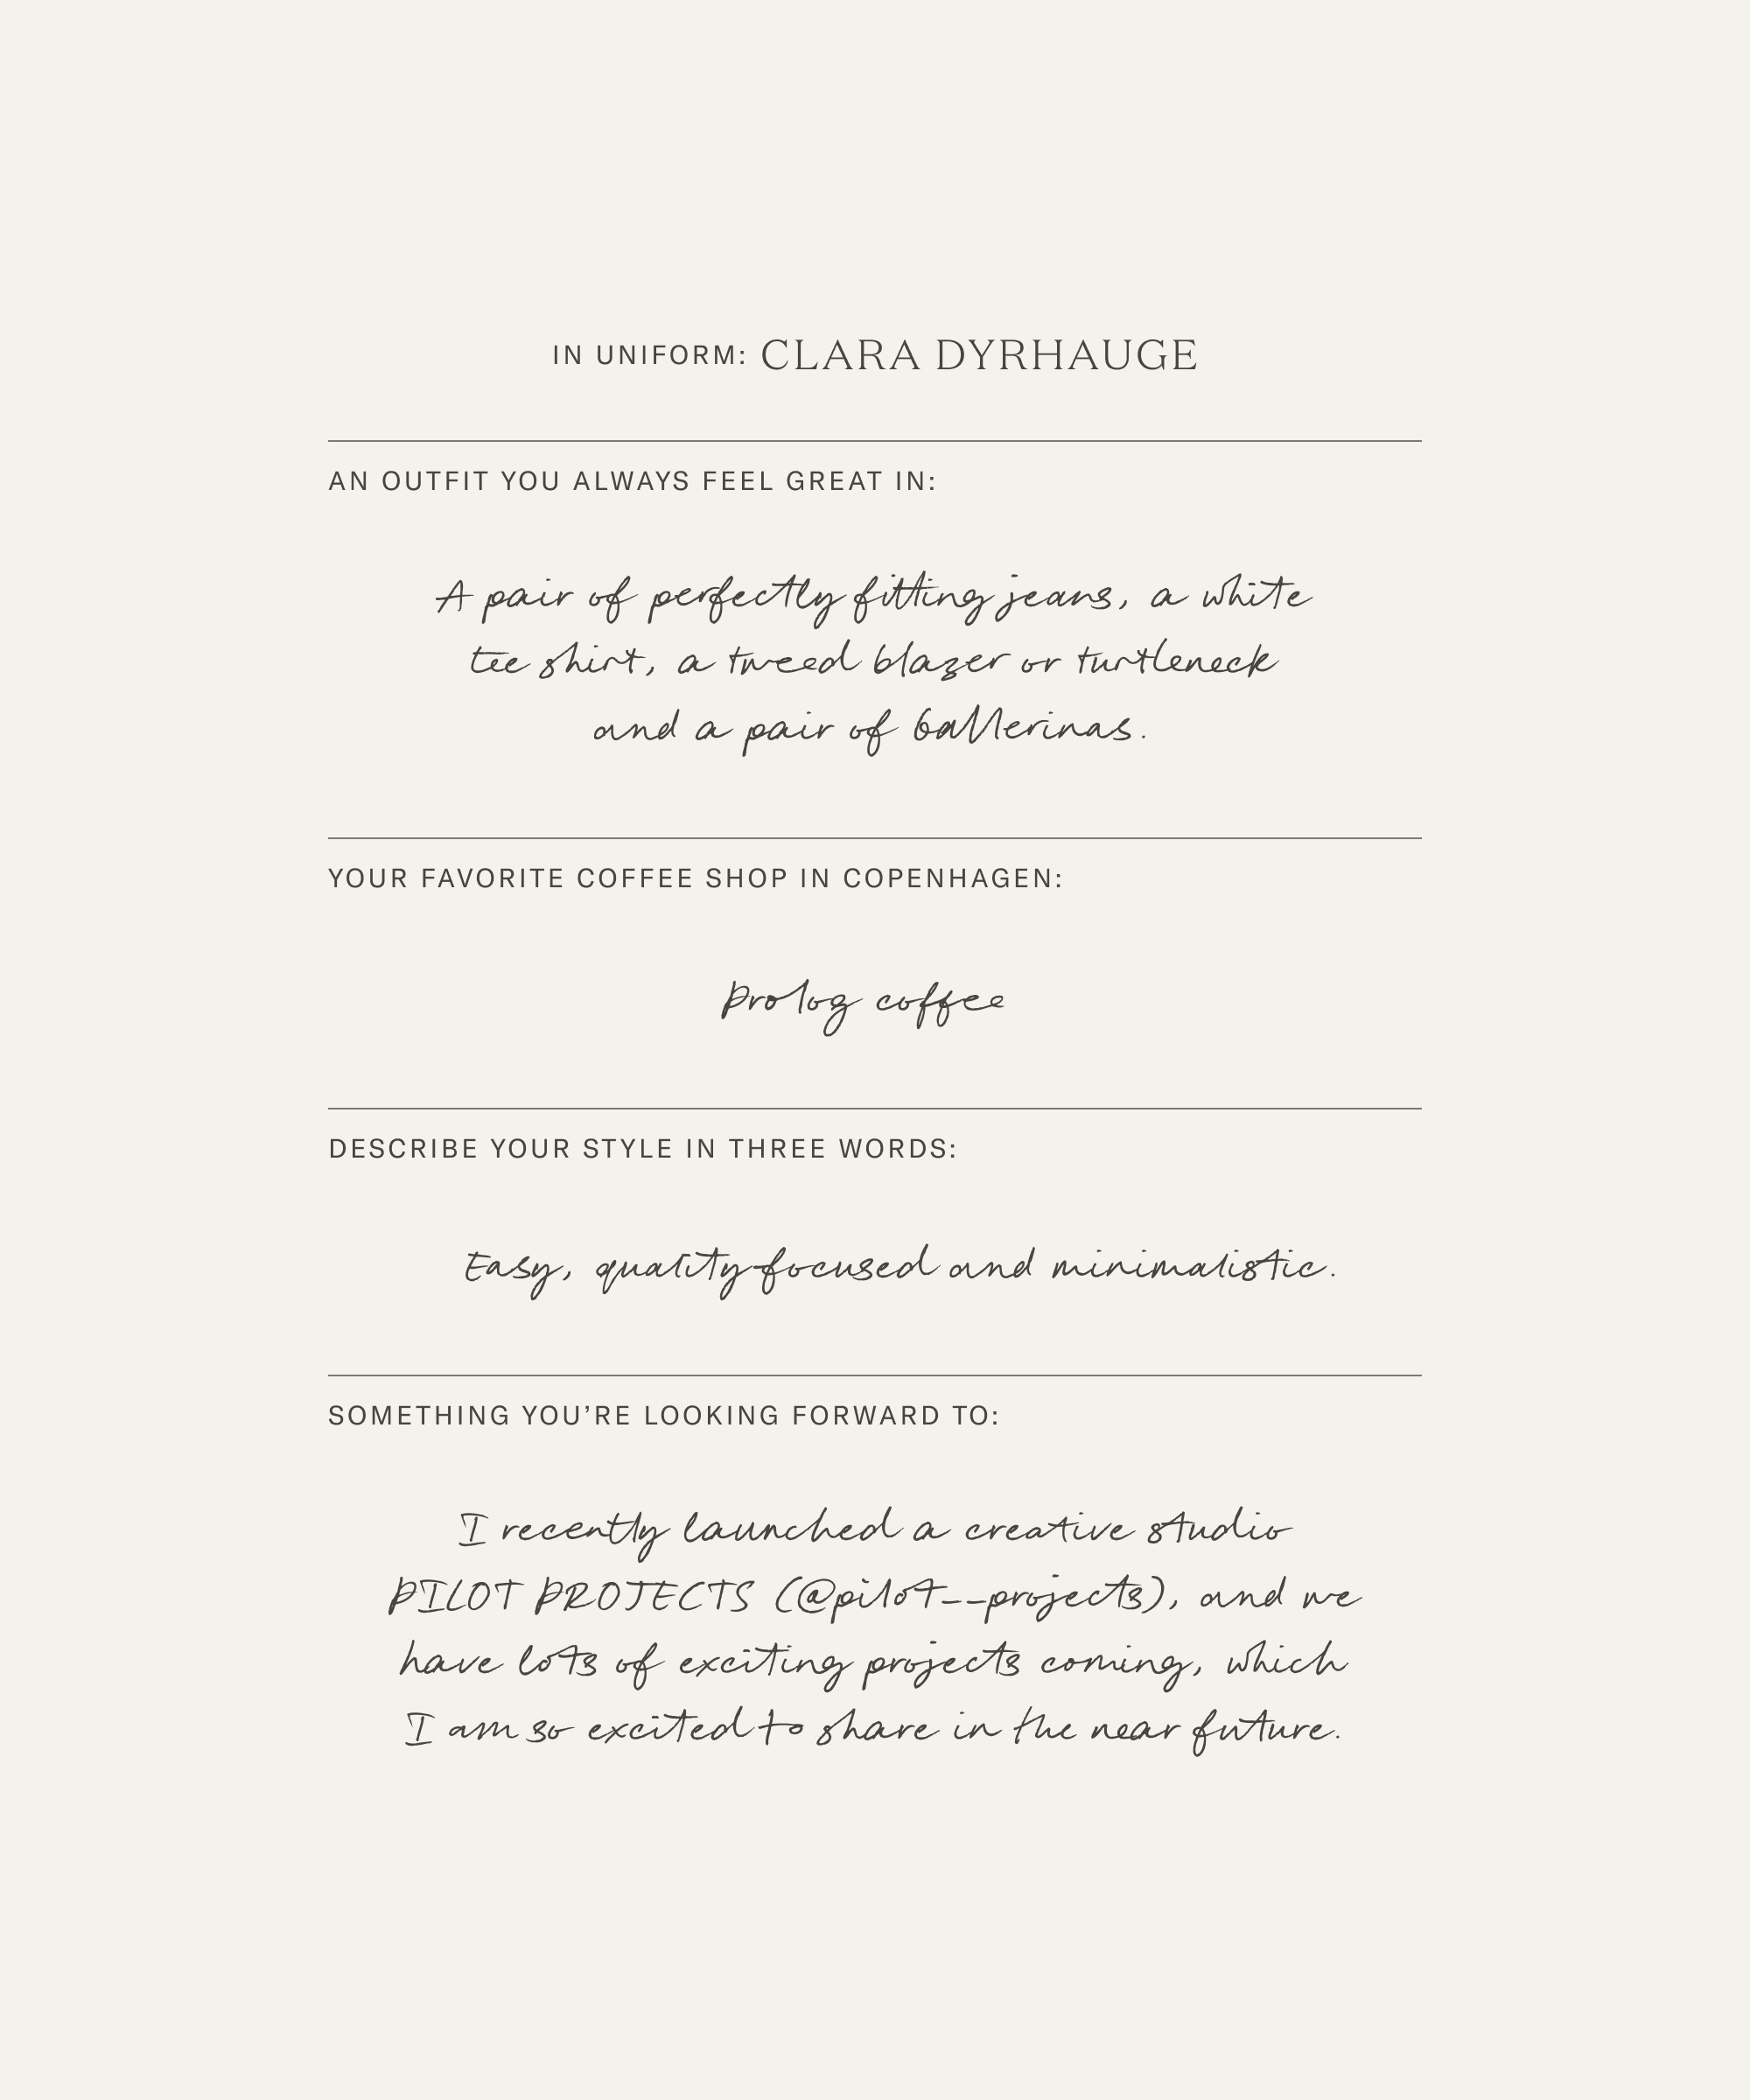 IN UNIFORM: CLARA DYRHAUGE
AN OUTFIT YOU ALWAYS FEEL GREAT IN:
A pair of perfectly fitting jeans, a white
tee shirt, a tweed blazer or turtleneck
and a pair of ballerinas.
YOUR FAVORITE COFFEE SHOP IN COPENHAGEN:
Prolog coffee
DESCRIBE YOUR STYLE IN THREE WORDS:
Easy, quality-focused and minimalistic.
SOMETHING YOU’RE LOOKING FORWARD TO:
I recently launched a creative studio
PILOT PROJECTS (@pilot__projects), and we
have lots of exciting projects coming, which
I am so excited to share in the near future.